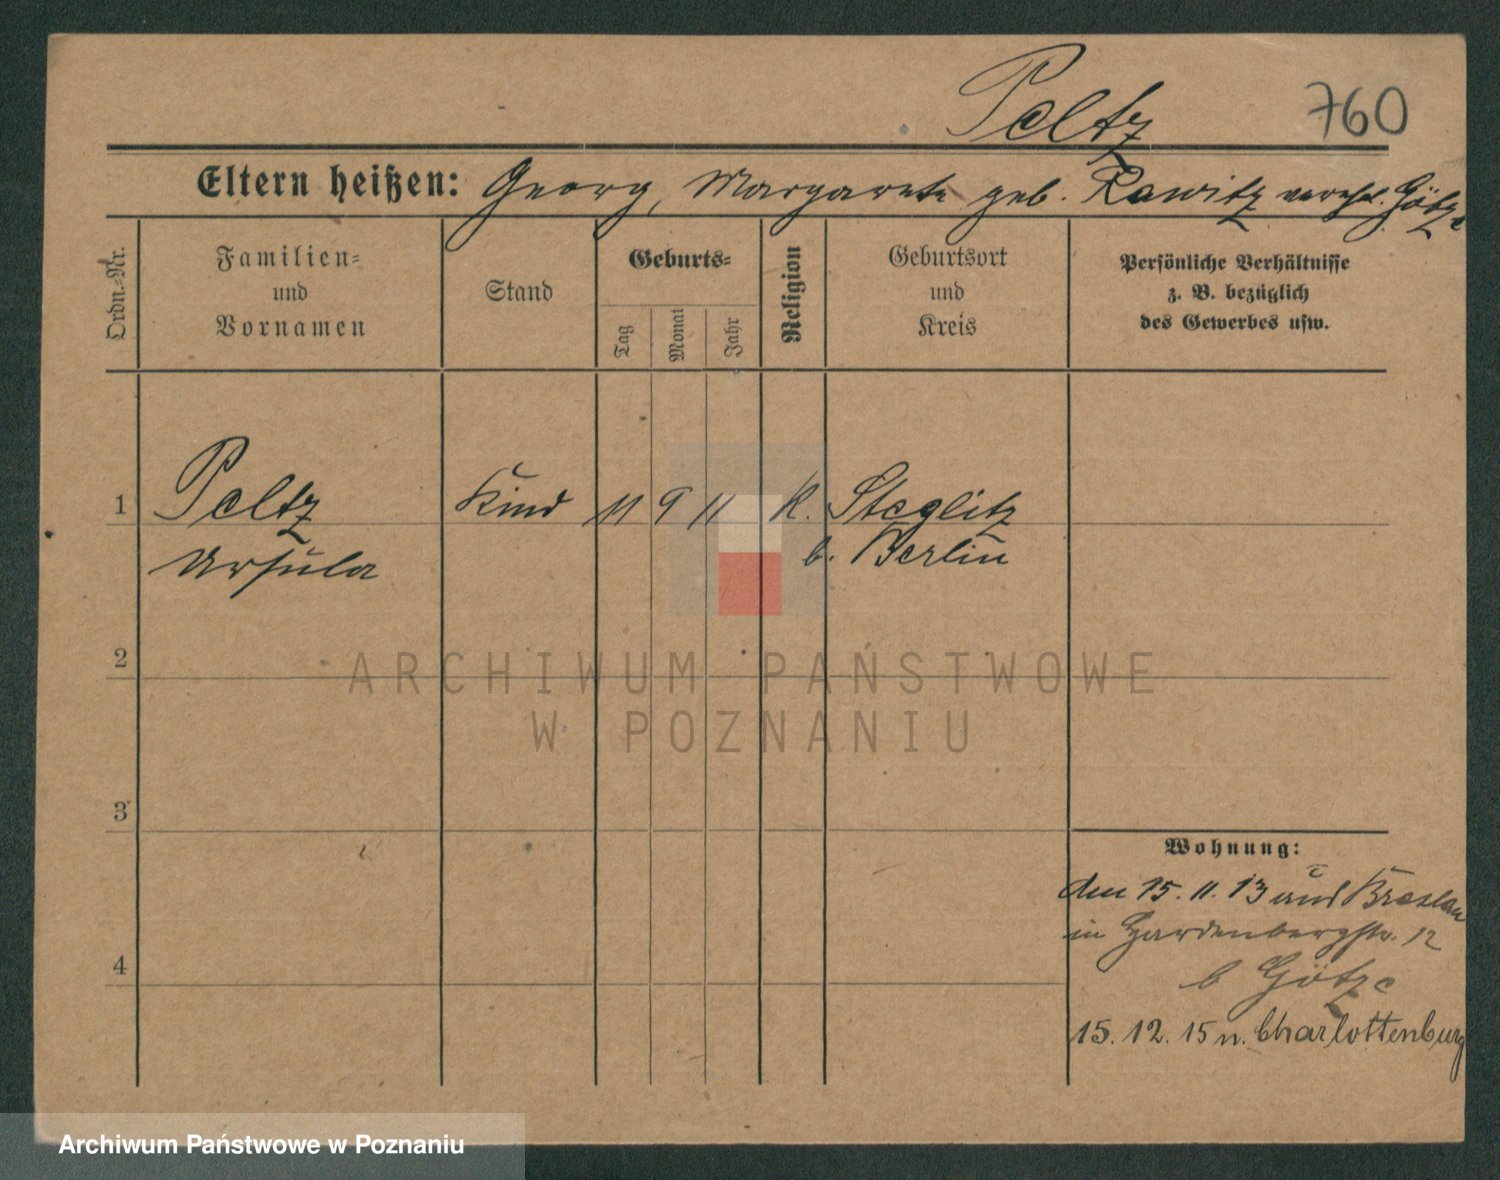 Peltz 760
Eltern heißen: Georg, Margarete geb. Rawitz verehel. Götze
Ordn.-Nr.
Familien-
und
Vornamen
Stand
Geburts-
Tag
Monat
Jahr
Religion
Geburtsort
und
Kreis
Persönliche Verhältnisse
z. B. bezüglich
des Gewerbes usw.
1 Peltz Kind 11 9 11 K. Steglitz
Ursula b. Berlin
2
ARCHIWUM PAŃSTWOWE
W POZNANIU
3
Wohnung:
den 15. 11. 13 aus Breslau
in Hardenbergstr. 12
4
b Götze
15. 12. 15 n. Charlottenburg
Archiwum Państwowe w Poznaniu